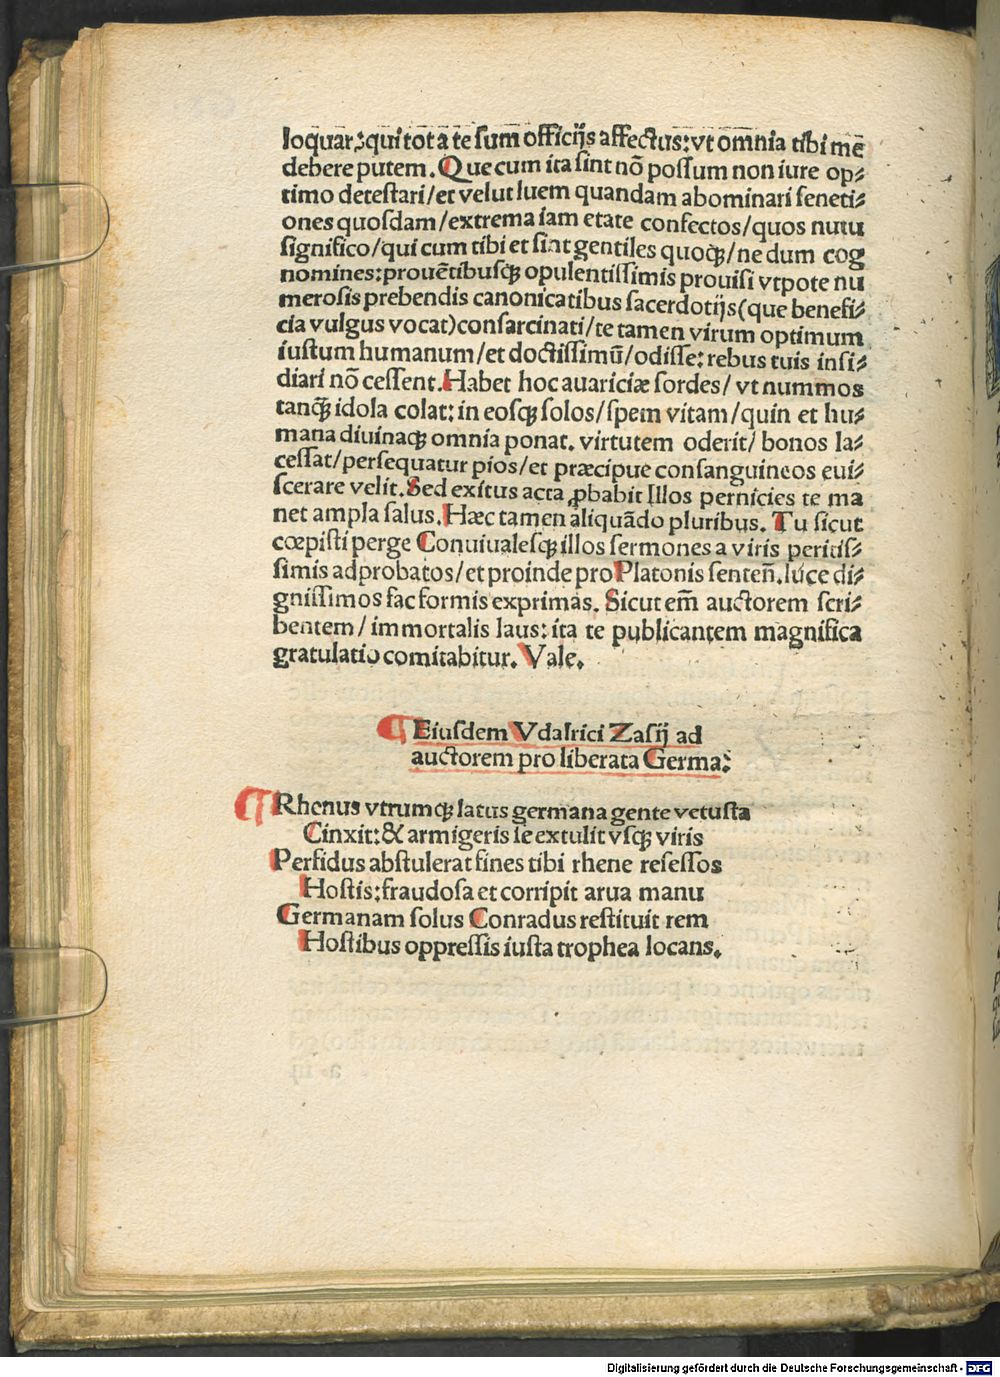 loquar: qui tot a te sum officijs affectus: vt omnia tibi mē
debere putem. Que cum ita sint nō possum non iure op⸗
timo detestari/et velut luem quandam abominari seneti⸗
ones quosdam/extrema iam etate confectos/quos nutu
significo/qui cum tibi et sint gentiles quoqꝫ/ne dum cog
nomines: prouētibusqꝫ opulentissimis prouisi vtpote nu
merosis prebendis canonicatibus sacerdotijs(que benefi⸗
cia vulgus vocat)consarcinati/te tamen virum optimum
iustum humanum/et doctissimū/odisse: rebus tuis insi⸗
diari nō cessent. Habet hoc auariciæ sordes/ vt nummos
tanqꝫ idola colat: in eosqꝫ solos/spem vitam/quin et hu⸗
mana diuinaqꝫ omnia ponat. virtutem oderit/ bonos la⸗
cessat/persequatur pios/et præcipue consanguineos eui⸗
scerare velit. Sed exitus acta ꝓbabit Illos pernicies te ma
net ampla salus. Hæc tamen aliquādo pluribus. Tu sicut
cœpisti perge Conuiualesqꝫ illos sermones a viris peritis⸗
simis adprobatos/et proinde pro Platonis senteñ. luce di⸗
gnissimos fac formis exprimas. Sicut em̄ auctorem scri⸗
bentem/ immortalis laus: ita te publicantem magnifica
gratulatio comitabitur. Vale.
¶ Eiusdem Vdalrici Zasij ad
auctorem pro liberata Germa:
¶ Rhenus vtrumqꝫ latus germana gente vetusta
Cinxit: & armigeris se extulit vsqꝫ viris
Perfidus abstulerat fines tibi rhene resessos
Hostis: fraudosa et corripit arua manu
Germanam solus Conradus restituit rem
Hostibus oppressis iusta trophea locans.
Digitalisierung gefördert durch die Deutsche Forschungsgemeinschaft - DFG